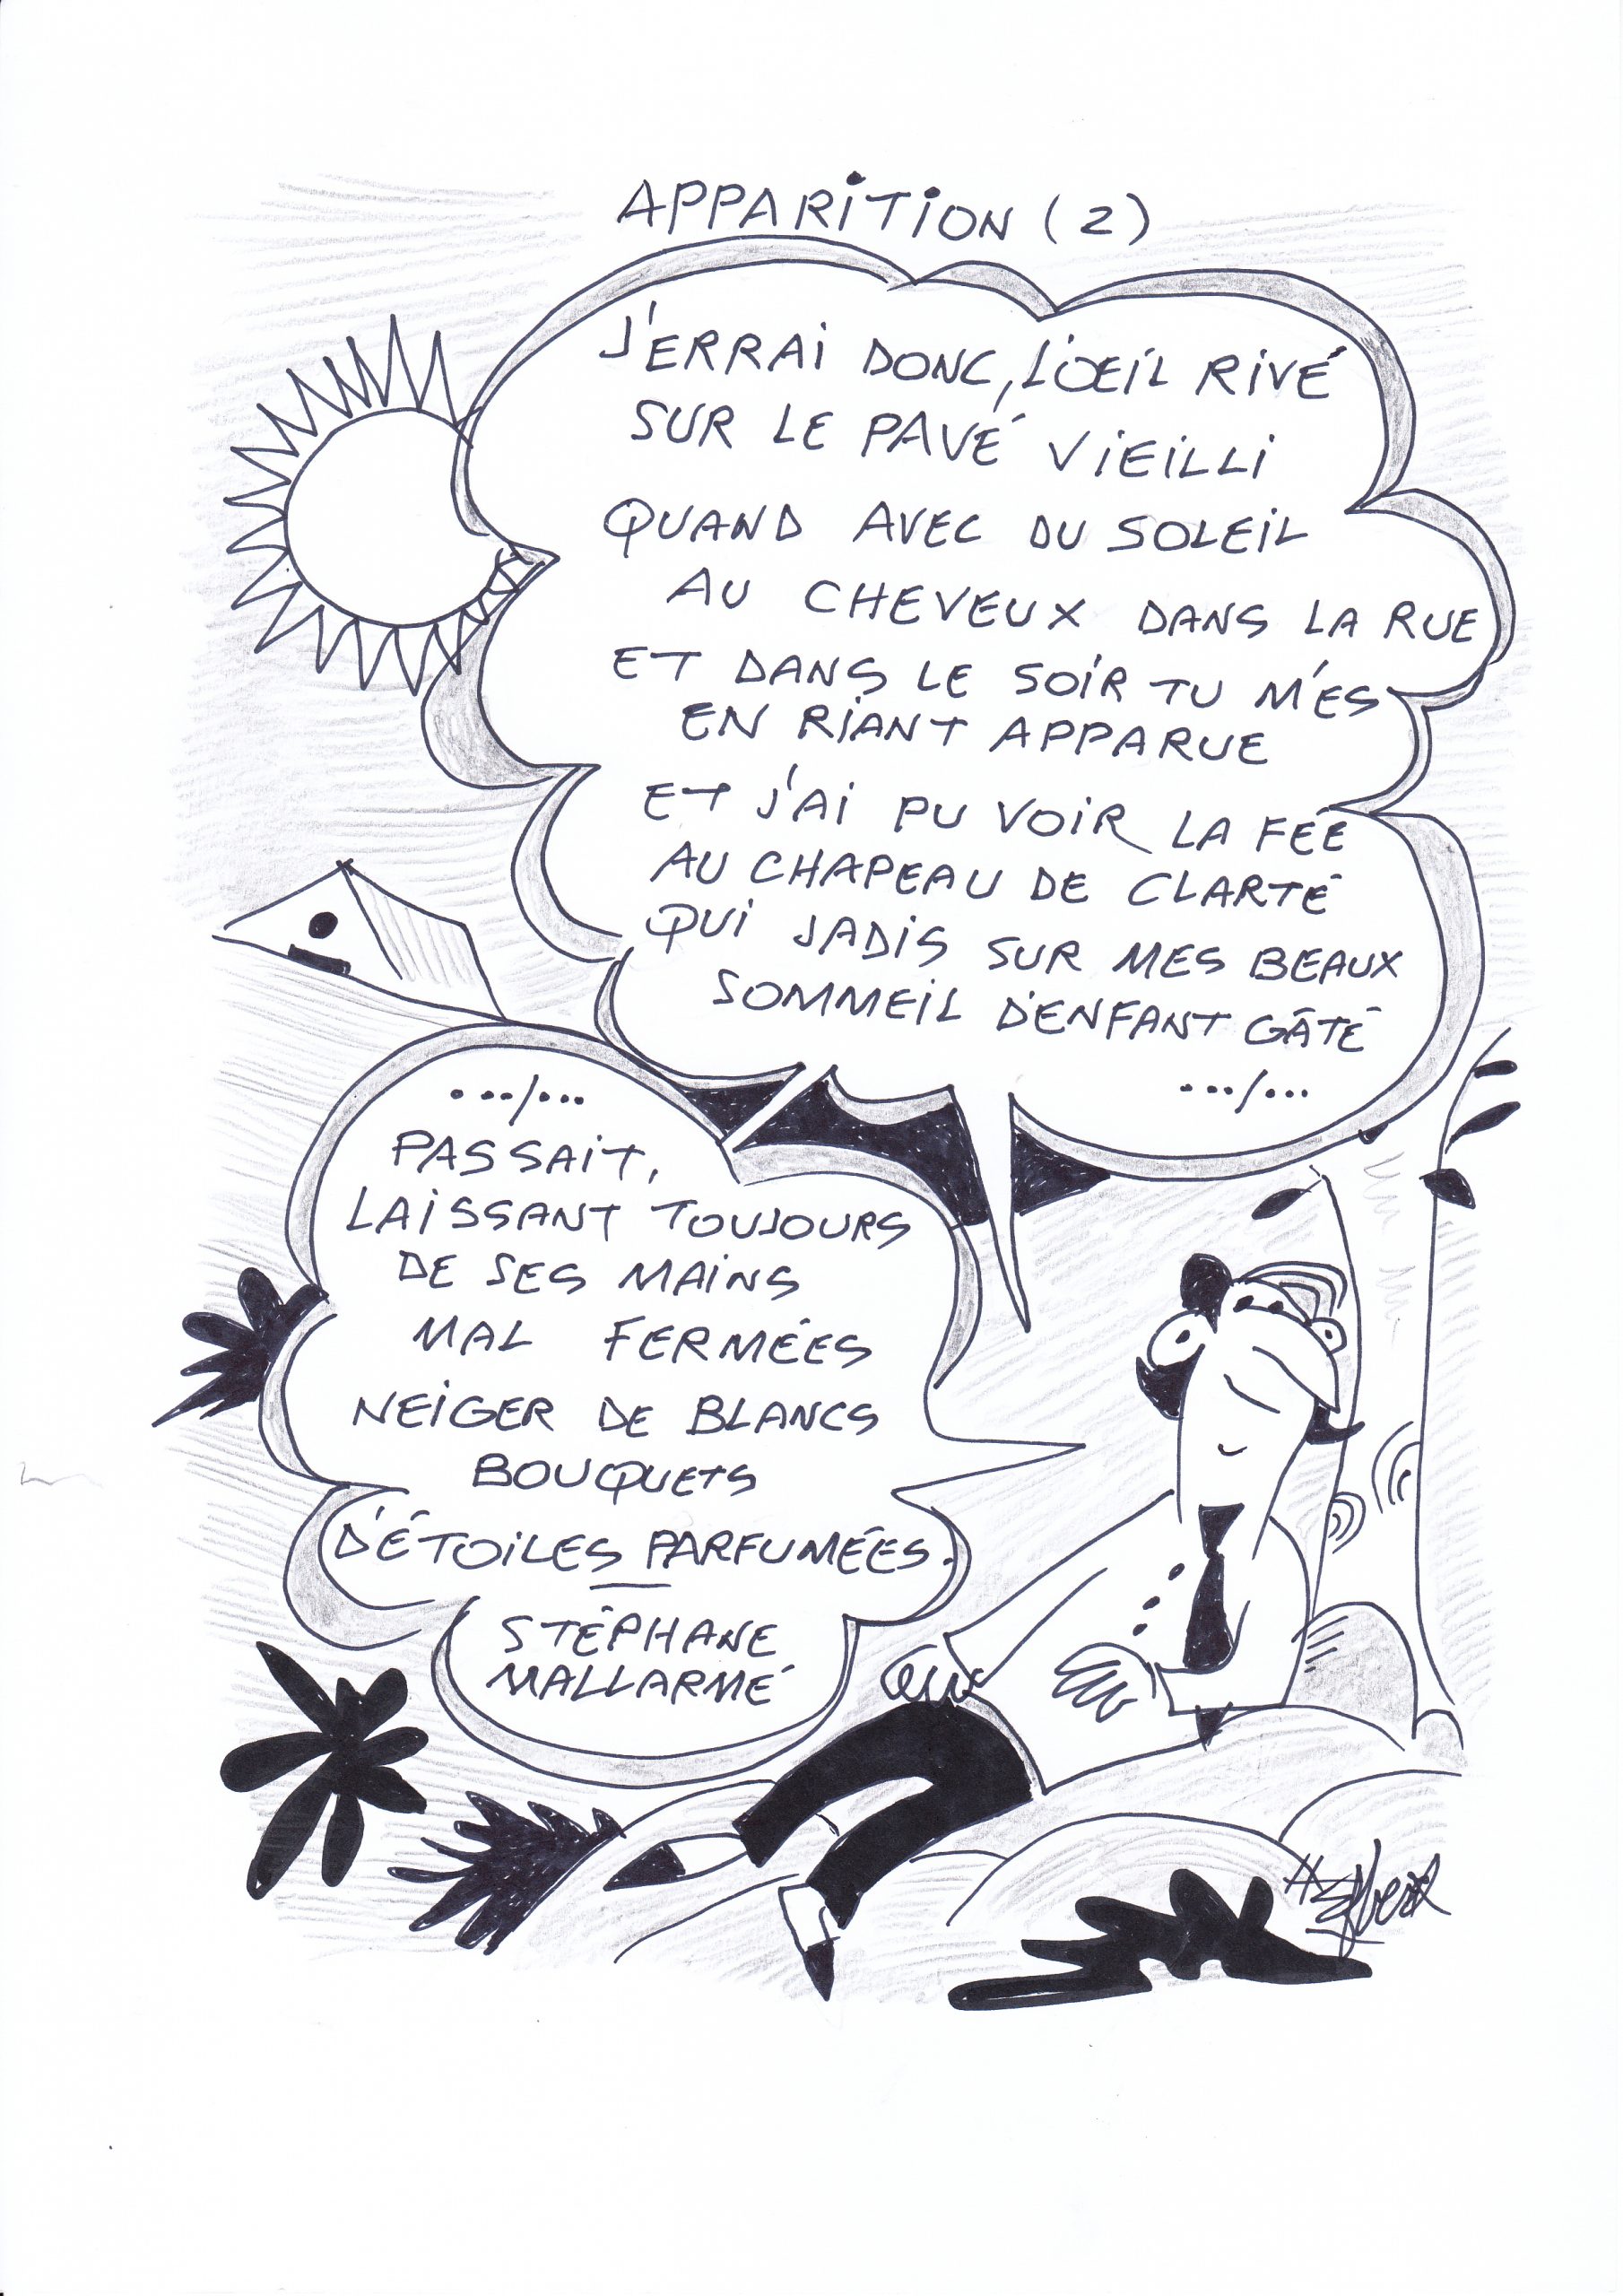 APPARITION (2)
J'ERRAI DONC, L'OEIL RIVÉ
SUR LE PAVÉ VIEILLI
QUAND AVEC DU SOLEIL
AU CHEVEUX DANS LA RUE
ET DANS LE SOIR TU M'ES
EN RIANT APPARUE
ET J'AI PU VOIR LA FÉE
AU CHAPEAU DE CLARTÉ
QUI JADIS SUR MES BEAUX
SOMMEIL D'ENFANT GÂTÉ
.../...
.../...
PASSAIT,
LAISSANT TOUJOURS
DE SES MAINS
MAL FERMÉES
NEIGER DE BLANCS
BOUQUETS
D'ÉTOILES PARFUMÉES.
STÉPHANE
MALLARMÉ